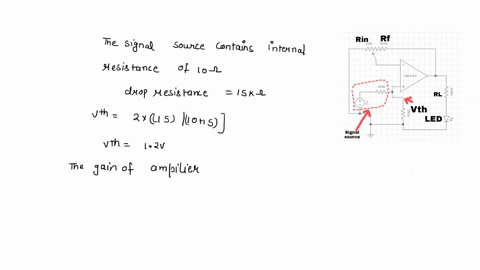 The signal source contains internal
resistance of 10Ω
drop resistance = 15KΩ
Vth = 2x(15)/[10+15]
Vth = 1.2V
The gain of ampilier
Rin Rf
RL
Vth
LED
Signal
source